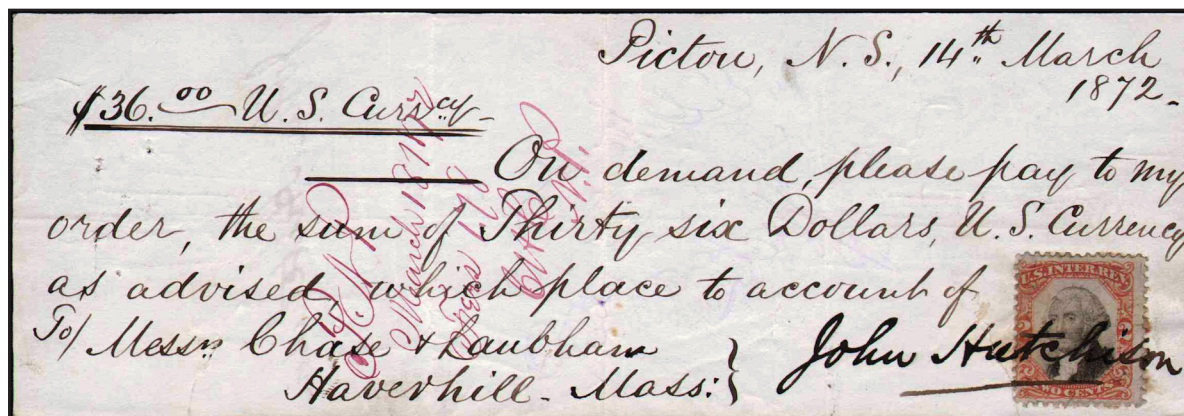 Pictou, N. S., 14th March
1872.
$36.00 U. S. Currcy
On demand, please pay to my
order, the sum of Thirty six Dollars, U. S. Currency
as advised, which place to account of
To/ Messrs Chase & Laubham
Haverhill. Mass:
John Hutchison
U.S. INTER. REV.
TWO CENTS
March 18 1872